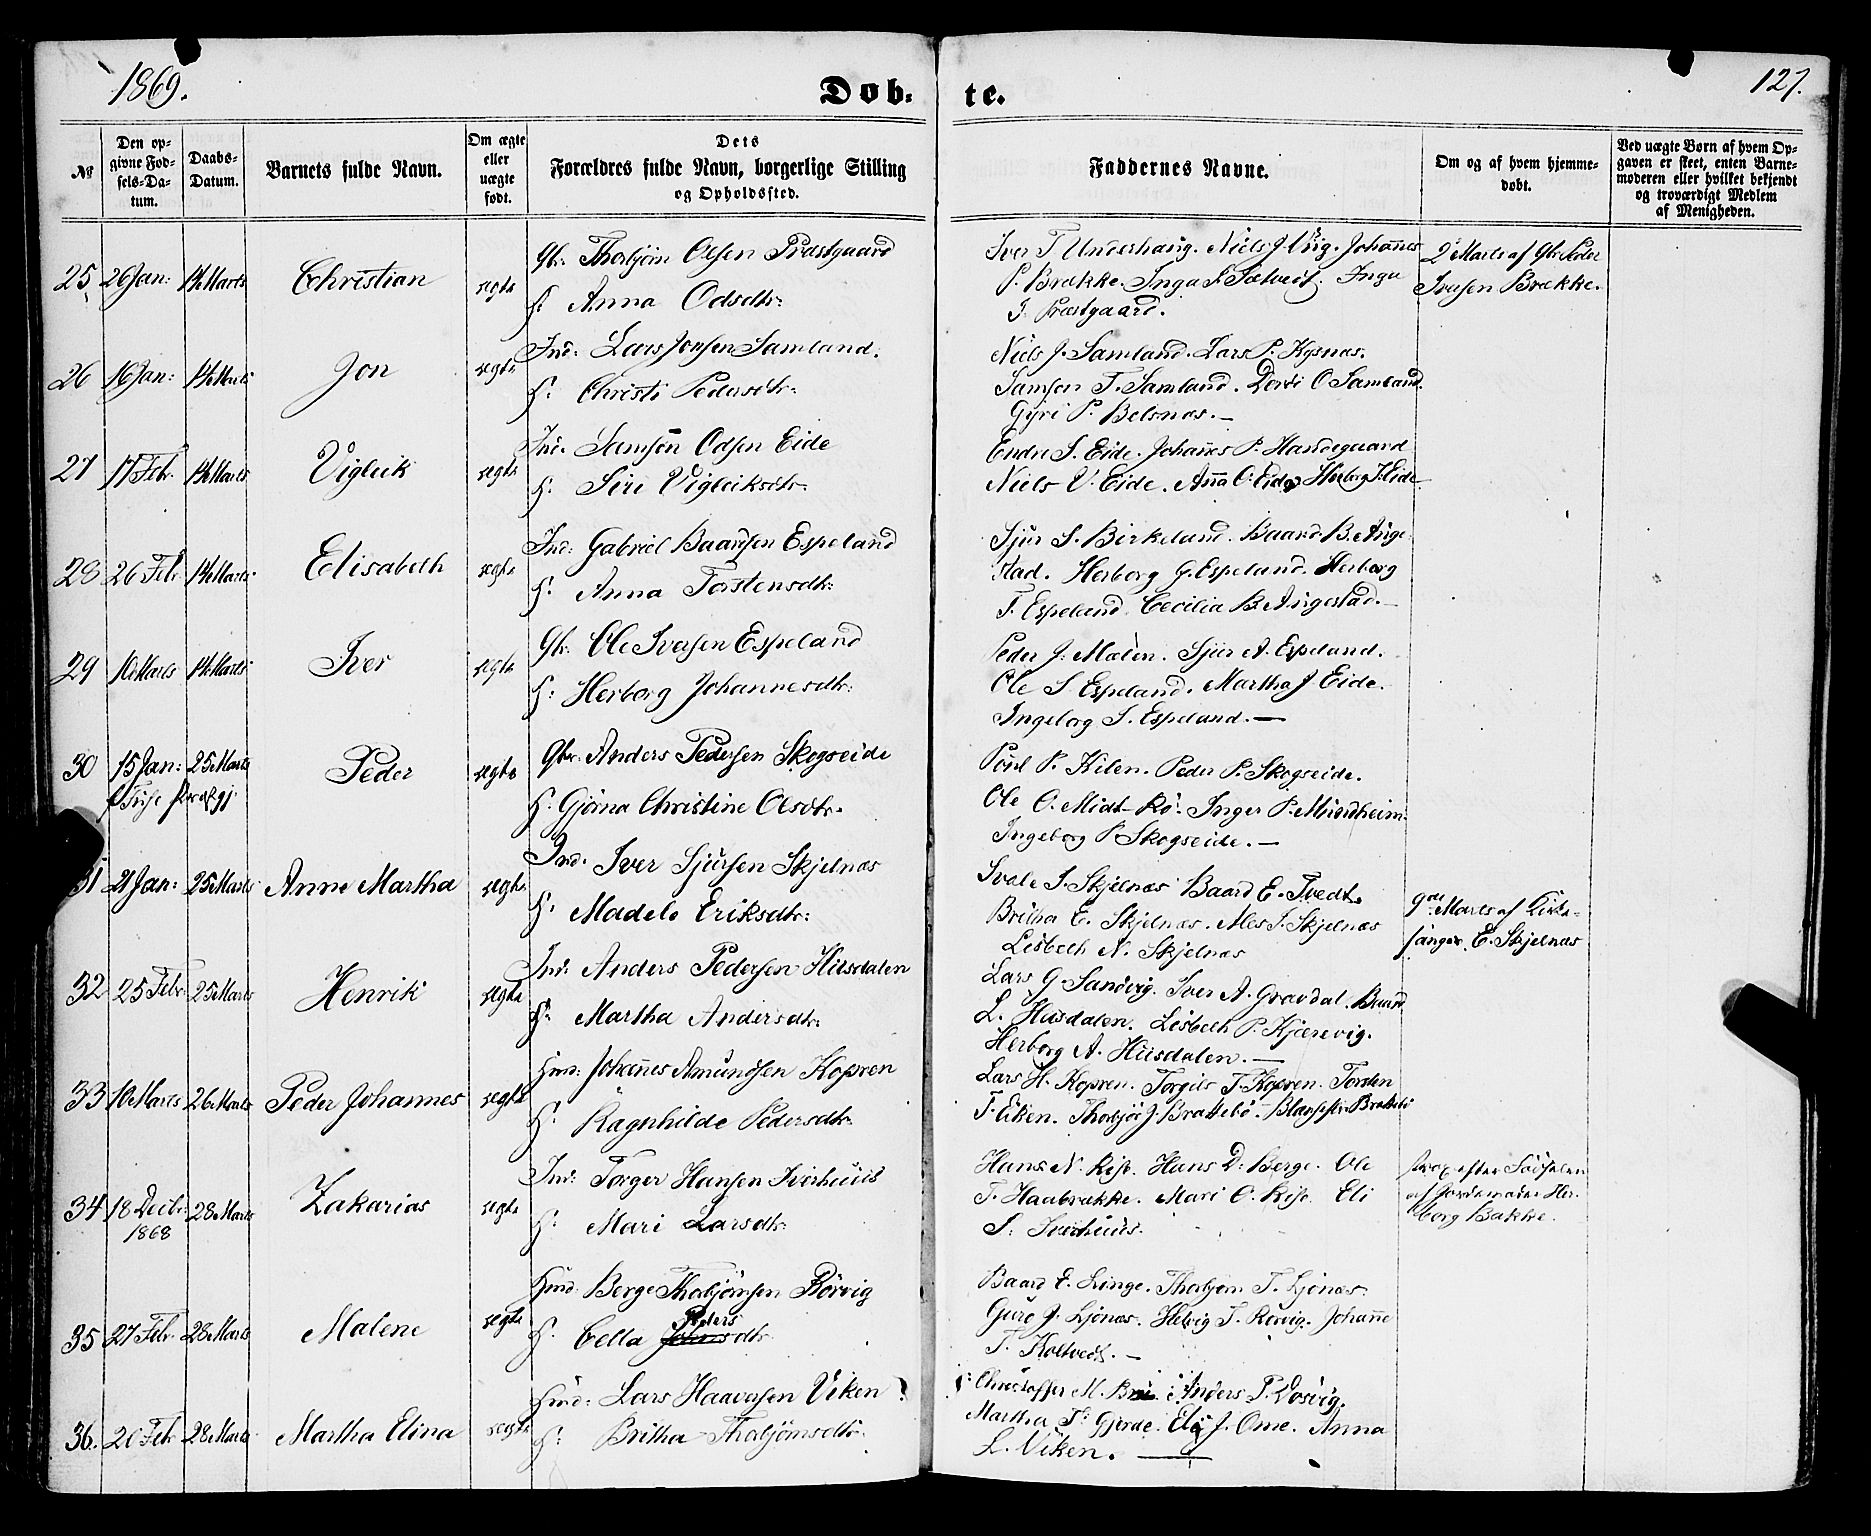 1869.
Døb-
te.
127.
№
Den op-
givne Fød-
sels-Da-
tum.
Daabs-
Datum.
Barnets fulde Navn.
Om ægte
eller
uægte
født.
Dets
Forældres fulde Navn, borgerlige Stilling
og Opholdssted.
Faddernes Navne.
Om og af hvem hjemme-
døbt.
Ved uægte Børn af hvem Op-
gaven er skeet, enten Barne-
moderen eller hvilket bekjendt
og troværdigt Medlem
af Menigheden.
25 26 Jan: 14 Marts Christian ægte
Gbr: Thorbjørn Olsen Præstgaard
H: Anna Odsdtr:
Iver T Underhaug. Niels J. Vig. Johannes
P. Brække. Inga S. Sætvedt. Inga
I. Præstgaard.
2 Marts af Gbr Peder
Iversen Brække.
26 16 Jan: 14 Marts Jon ægte
Ind: Lars Jonsen Samland.
H: Christi Pedersdtr:
Niels J. Samland. Lars P. Kysnæs.
Samson T. Samland. Dorti O Samland
Gyri P. Belsnæs. —
27 17 Febr. 14 Marts Vigleik ægte
Ind. Samson Odsen Eide
H: Siri Vigleiksdtr.
Endre S. Eide. Johannes P. Handegaard
Niels V. Eide. Anna O. Eide Herborg I. Eide
28 26 Febr. 14 Marts Elisabeth ægte
Ind: Gabriel Baardsen Espeland
H: Anna Torstensdtr:
Sjur S. Birkeland. Baard B. Ange-
stad. Herborg G. Espeland. Herborg
T. Espeland. Cecilia B. Angestad. —
29 10 Marts 14 Marts Iver ægte
Gbr: Ole Iversen Espeland
H: Herborg Johannesdtr:
Peder J. Mælen. Sjur A. Espeland.
Ole S. Espeland. Martha J Eide.
Ingeborg S. Espeland. —
30 15 Jan: 25 Marts Peder ægte
Gbr: Anders Pedersen Skogseide
H. Gjørna Christine Olsdtr.
Povel P. Kilen. Peder P. Skogseide.
Ole O. Midt-Rø. Inger P. Mundheim.
Ingeborg P. Skogseide. —
31 21 Jan: 25 Marts Anne Martha ægte
Ind. Iver Sjursen Skjelnæs
H: Madele Eriksdtr:
Ivale S. Skjelnæs Baard E. Tvedt.
Britha E. Skjelnæs. Ales S. Skjelnæs
Lisbeth N. Skjelnæs
9de Marts af Kirke-
sanger. E. Skjelnæs
32 25 Febr. 25 Marts Henrik ægte
Ind: Anders Pedersen Husdalen
H: Martha Andersdtr:
Lars G. Sandvig. Iver A. Gravdal. Baard
L. Husdalen. Lisbeth P. Kjærevig.
Herborg A. Husdalen. —
33 10 Marts 26 Marts Peder Johannes ægte
Hmd: Johannes Amundsen Kopren
H: Ragnhilde Pedersdtr:
Lars H. Kopren. Torgils T. Kopren. Torsten
T. Eiken. Thorbjør J. Brattebø. Brattebø
34 18 Decbr: 28 Marts Zakarias ægte
1868
Ind: Torger Hansen Iverhuus
H: Mari Larsdtr:
Hans N. Risø. Hans D. Berge. Ole
T. Haabrække. Mari O. Risø. Eli
S. Iverhuus.
strax efter Fødselen
af Jordemoder Her-
borg Bakke.
35 27 Febr. 28 Marts Malene ægte
Hmd: Berge Thorbjørnsen Rørvig
Peders
H: Cella Johnsdtr:
Baard E. Linge. Thorbjørn T. Ljønæs.
Guro J. Ljønæs. Helvig T. Rørvig. Johanne
T. Koltvedt. —
36. 20 Febr 28 Marts Martha Elina ægte
Hmd: Lars Haaversen Viken
H: Britha Thorbjørnsdtr.
Christoffer M. Anders T. Vosvig.
Martha T. Gjerde. Eli J. Ome. Anna
L. Viken. —